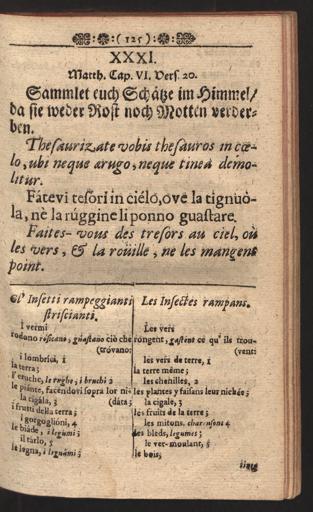 ( 125 )
XXXI.
Matth. Cap. VI. Vers. 20.
Sammlet euch Schätze im Himmel/
da sie weder Rost noch Motten verder-
ben.
Thesaurizate vobis thesauros in cœ-
lo, ubi neque ærugo, neque tinea demo-
litur.
Fátevi tesori in ciélo, ove la tignuò-
la, nè la rúggine li ponno guastare.
Faites-vous des tresors au ciel, où
les vers, & la roüille, ne les mangent
point.
Gl' Insetti rampeggianti
striscianti.
I vermi
rodono rósicano, guastano ciò che
(tróvano:
i lombrici, 1
la terra;
l'eruche, le rughe, i bruchi 2
le piante, facéndovi sopra lor ni-
la cigála, 3 (dáta;
i frutti della terra;
i gorgoglióni, 4
le biáde, i legumi;
il tárlo, 5
le legna, i legnámi;
Les Insectes rampans.
Les vers
rongent, gastent ce qu' ils trou-
(vent:
les vers de terre, 1
la terre même;
les chenilles, 2
les plantes y faisans leur nichée;
la cigale, 3
les fruits de la terre;
les mitons, charensons 4
les bleds, legumes;
le ver-moulant, 5
le bois,